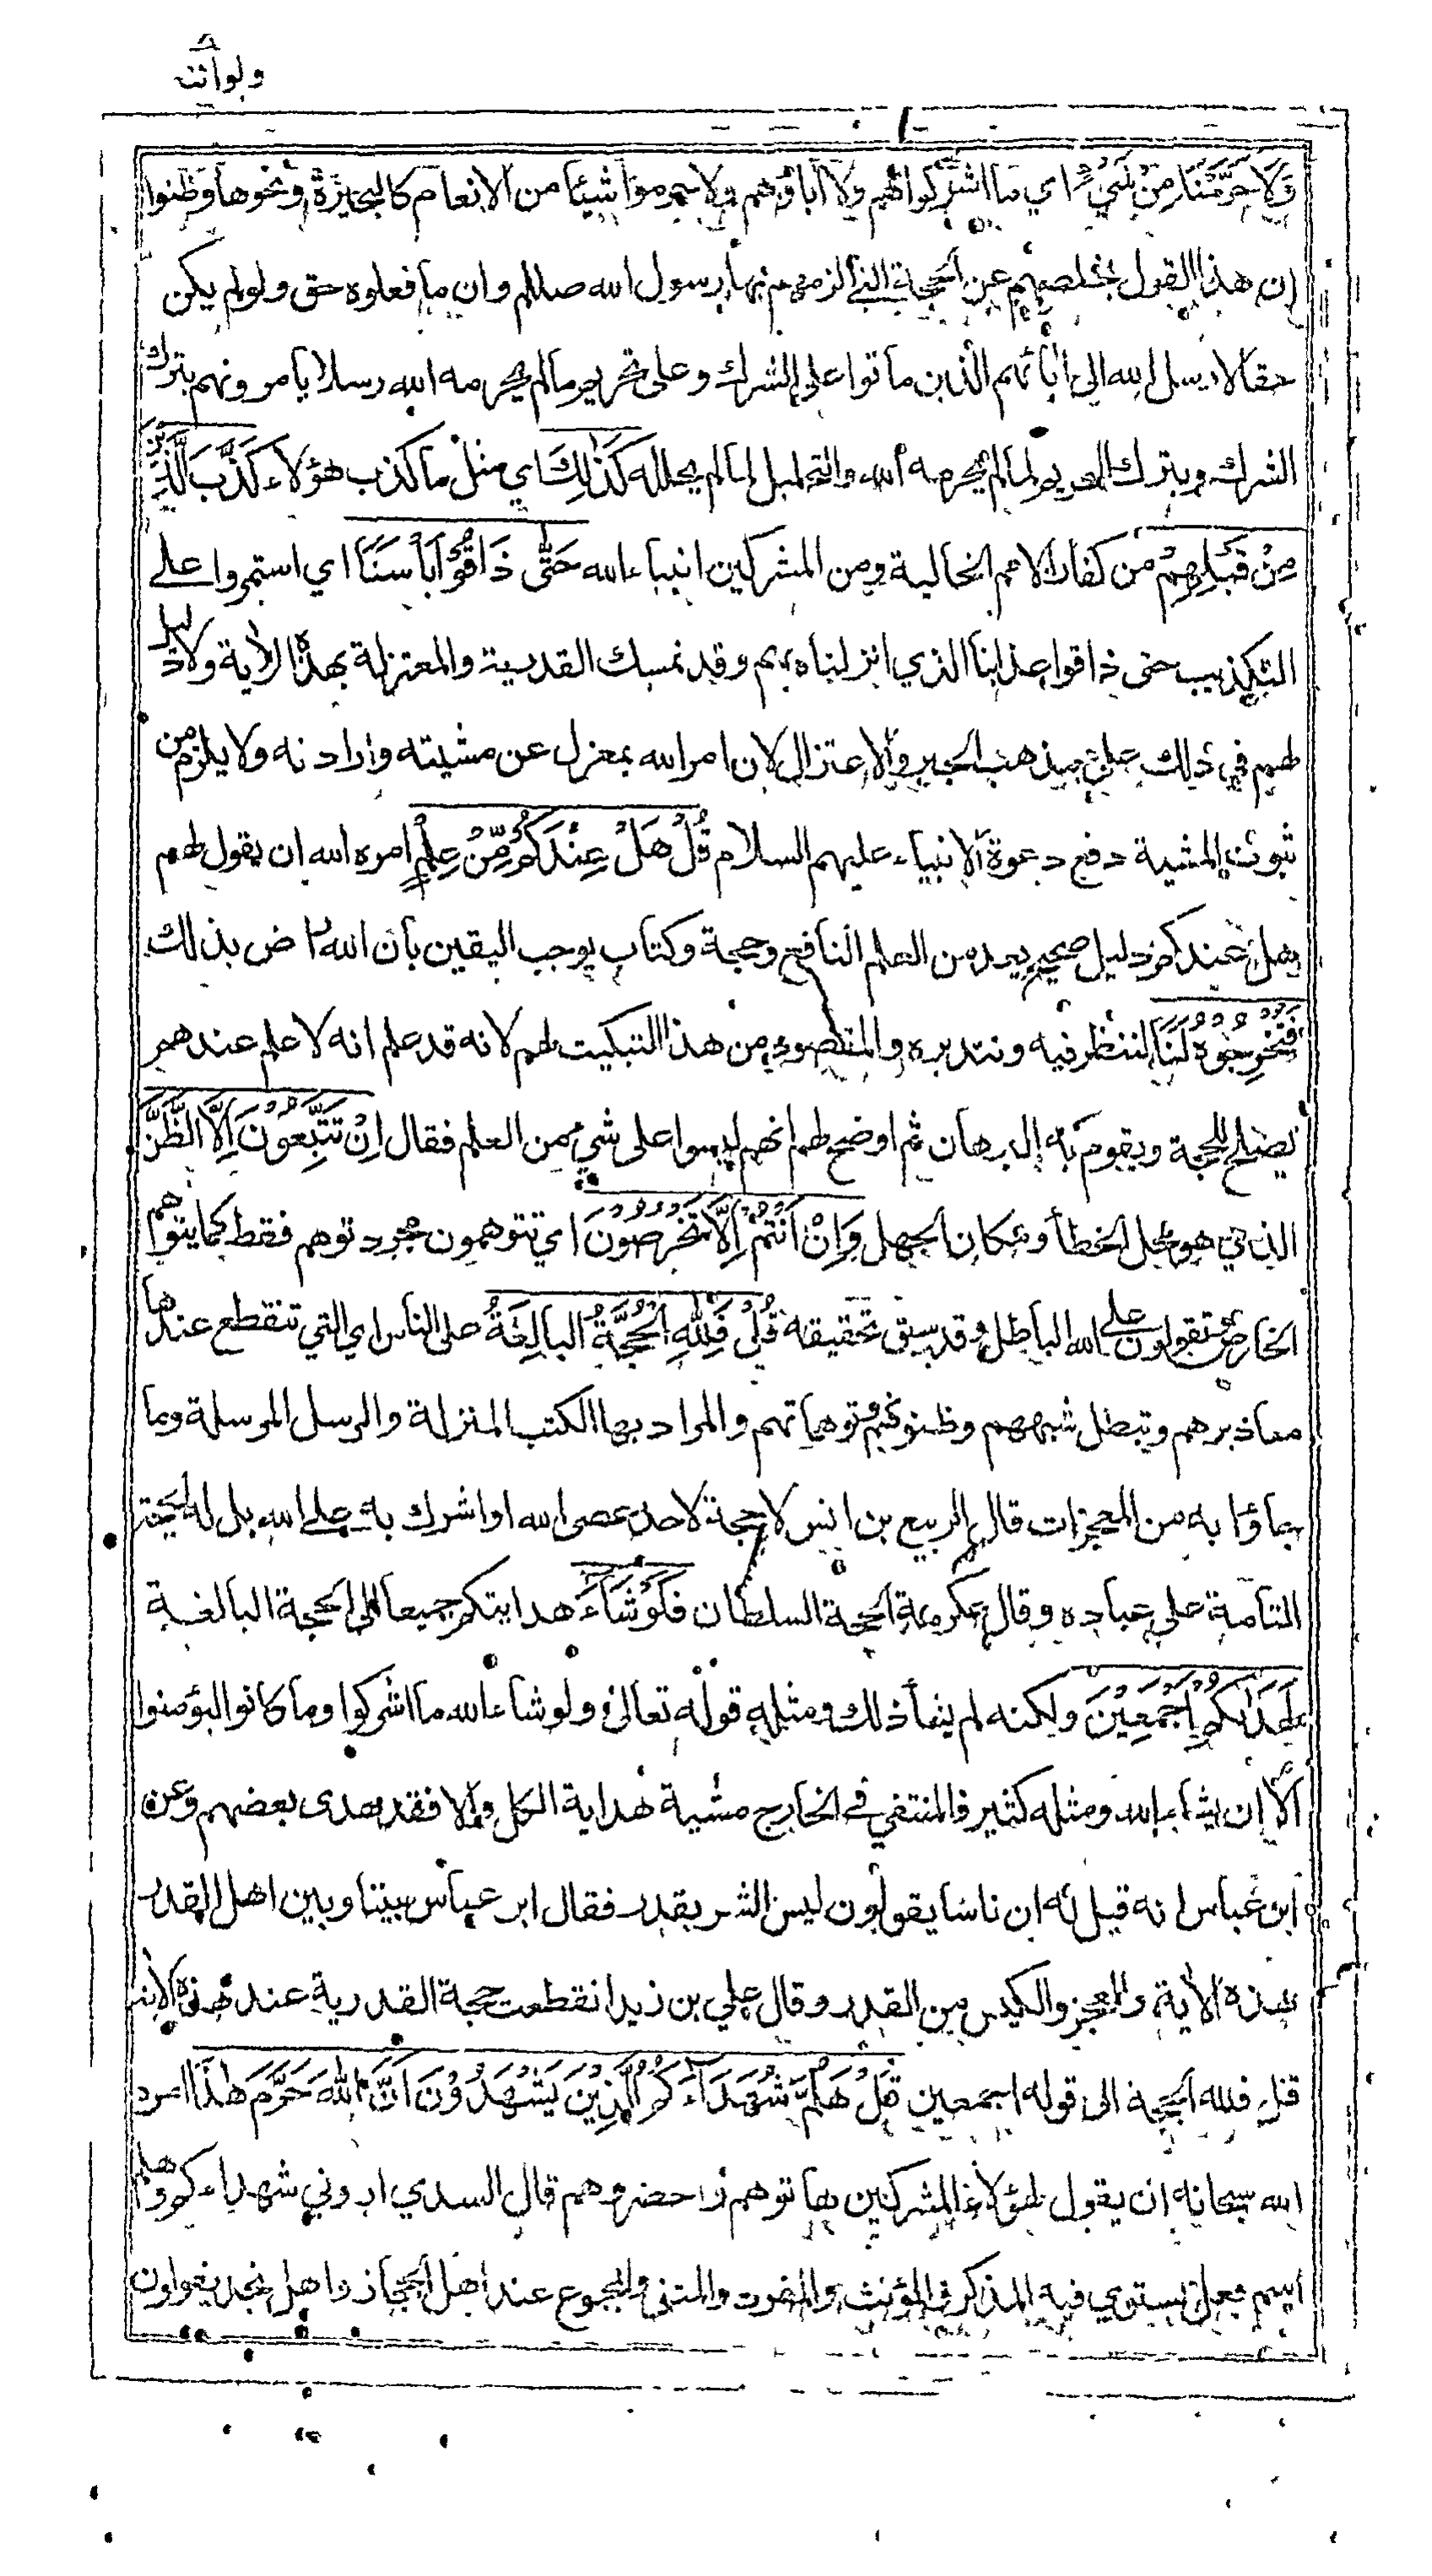 ولو اننا
وَلَا حَرَّمْنَا مِنْ شَيْءٍ اي ما اشركوا هم ولا اباؤهم ولا حرموا شيئا من الانعام كالبحيرة ونحوها وظنوا
ان هذا القول يخلصهم عن الحجة التي الزمهم بها رسول الله صللم وان ما فعلوه حق ولو لم يكن
حقا لارسل الله الى ابائهم الذين ماتوا على الشرك وعلى تحريم ما لم يحرمه الله رسلا يامرونهم بترك
الشرك وبترك التحريم لما لم يحرمه الله والتحليل لما لم يحلله كَذٰلِكَ اي مثل ما كذب هؤلاء كَذَّبَ الَّذِيْنَ
مِنْ قَبْلِهِمْ من كفار الامم الخالية ومن المشركين انبياء الله حَتّٰى ذَاقُوْا بَأْسَنَا اي استمروا على
التكذيب حتى ذاقوا عذابنا الذي انزلناه بهم وقد تمسك القدرية والمعتزلة بهذه الأية ولا دليل
لهم في ذلك على مذهب الجبر والاعتزال لان امر الله بمعزل عن مشيته وارادته ولا يلزم من
ثبوت المشية دفع دعوة الانبياء عليهم السلام قُلْ هَلْ عِنْدَكُمْ مِّنْ عِلْمٍ امره الله ان يقول لهم
هل عندكم دليل صحيح يعد من العلم النافع وحجة وكتاب يوجب اليقين بان الله راض بذلك
فَتُخْرِجُوْهُ لَنَا لننظر فيه ونتدبره والمقصود من هذا التبكيت لهم لانه قد علم انه لا علم عندهم
يصلح للحجة ويقوم به البرهان ثم اوضح لهم انهم ليسوا على شيء من العلم فقال اِنْ تَتَّبِعُوْنَ اِلَّا الظَّنَّ
الذي هو محل الخطأ ومكان الجهل وَاِنْ اَنْتُمْ اِلَّا تَخْرُصُوْنَ اي تتوهمون مجرد توهم فقط كما يتوهم
الخارص وتقولون على الله الباطل وقد سبق تحقيقه قُلْ فَلِلّٰهِ الْحُجَّةُ الْبَالِغَةُ على الناس اي التي تنقطع عندها
معاذيرهم وتبطل شبههم وظنونهم وتوهماتهم والمراد بها الكتب المنزلة والرسل المرسلة وما
جاؤا به من المعجزات قال الربيع بن انس لا حجة لاحد عصى الله او اشرك به على الله بل له الحجة
التامة على عباده وقال عكرمة الحجة السلطان فَلَوْ شَآءَ هدايتكم جميعا الى الحجة البالغة
لَهَدٰىكُمْ اَجْمَعِيْنَ ولكنه لم يشأ ذلك ومثله قوله تعالى ولو شاء الله ما اشركوا وما كانوا ليؤمنوا
الا ان يشاء الله ومثله كثير فالمنتفي في الخارج مشية هداية الكل والا فقد هدى بعضهم وعن
ابن عباس انه قيل له ان ناسا يقولون ليس الشر بقدر فقال ابن عباس بيننا وبين اهل القدر
هذه الأية والعجز والكيس من القدر وقال علي بن زيد انقطعت حجة القدرية عند هذه الأية
قل فلله الحجة الى قوله اجمعين قُلْ هَلُمَّ شُهَدَآءَكُمُ الَّذِيْنَ يَشْهَدُوْنَ اَنَّ اللّٰهَ حَرَّمَ هٰذَا امره
الله سبحانه ان يقول لهؤلاء المشركين هاتوهم واحضروهم قال السدي اروني شهداءكم وهلم
اسم فعل يستوي فيه المذكر والمؤنث والمفرد والمثنى والمجموع عند اهل الحجاز واهل نجد يقولون